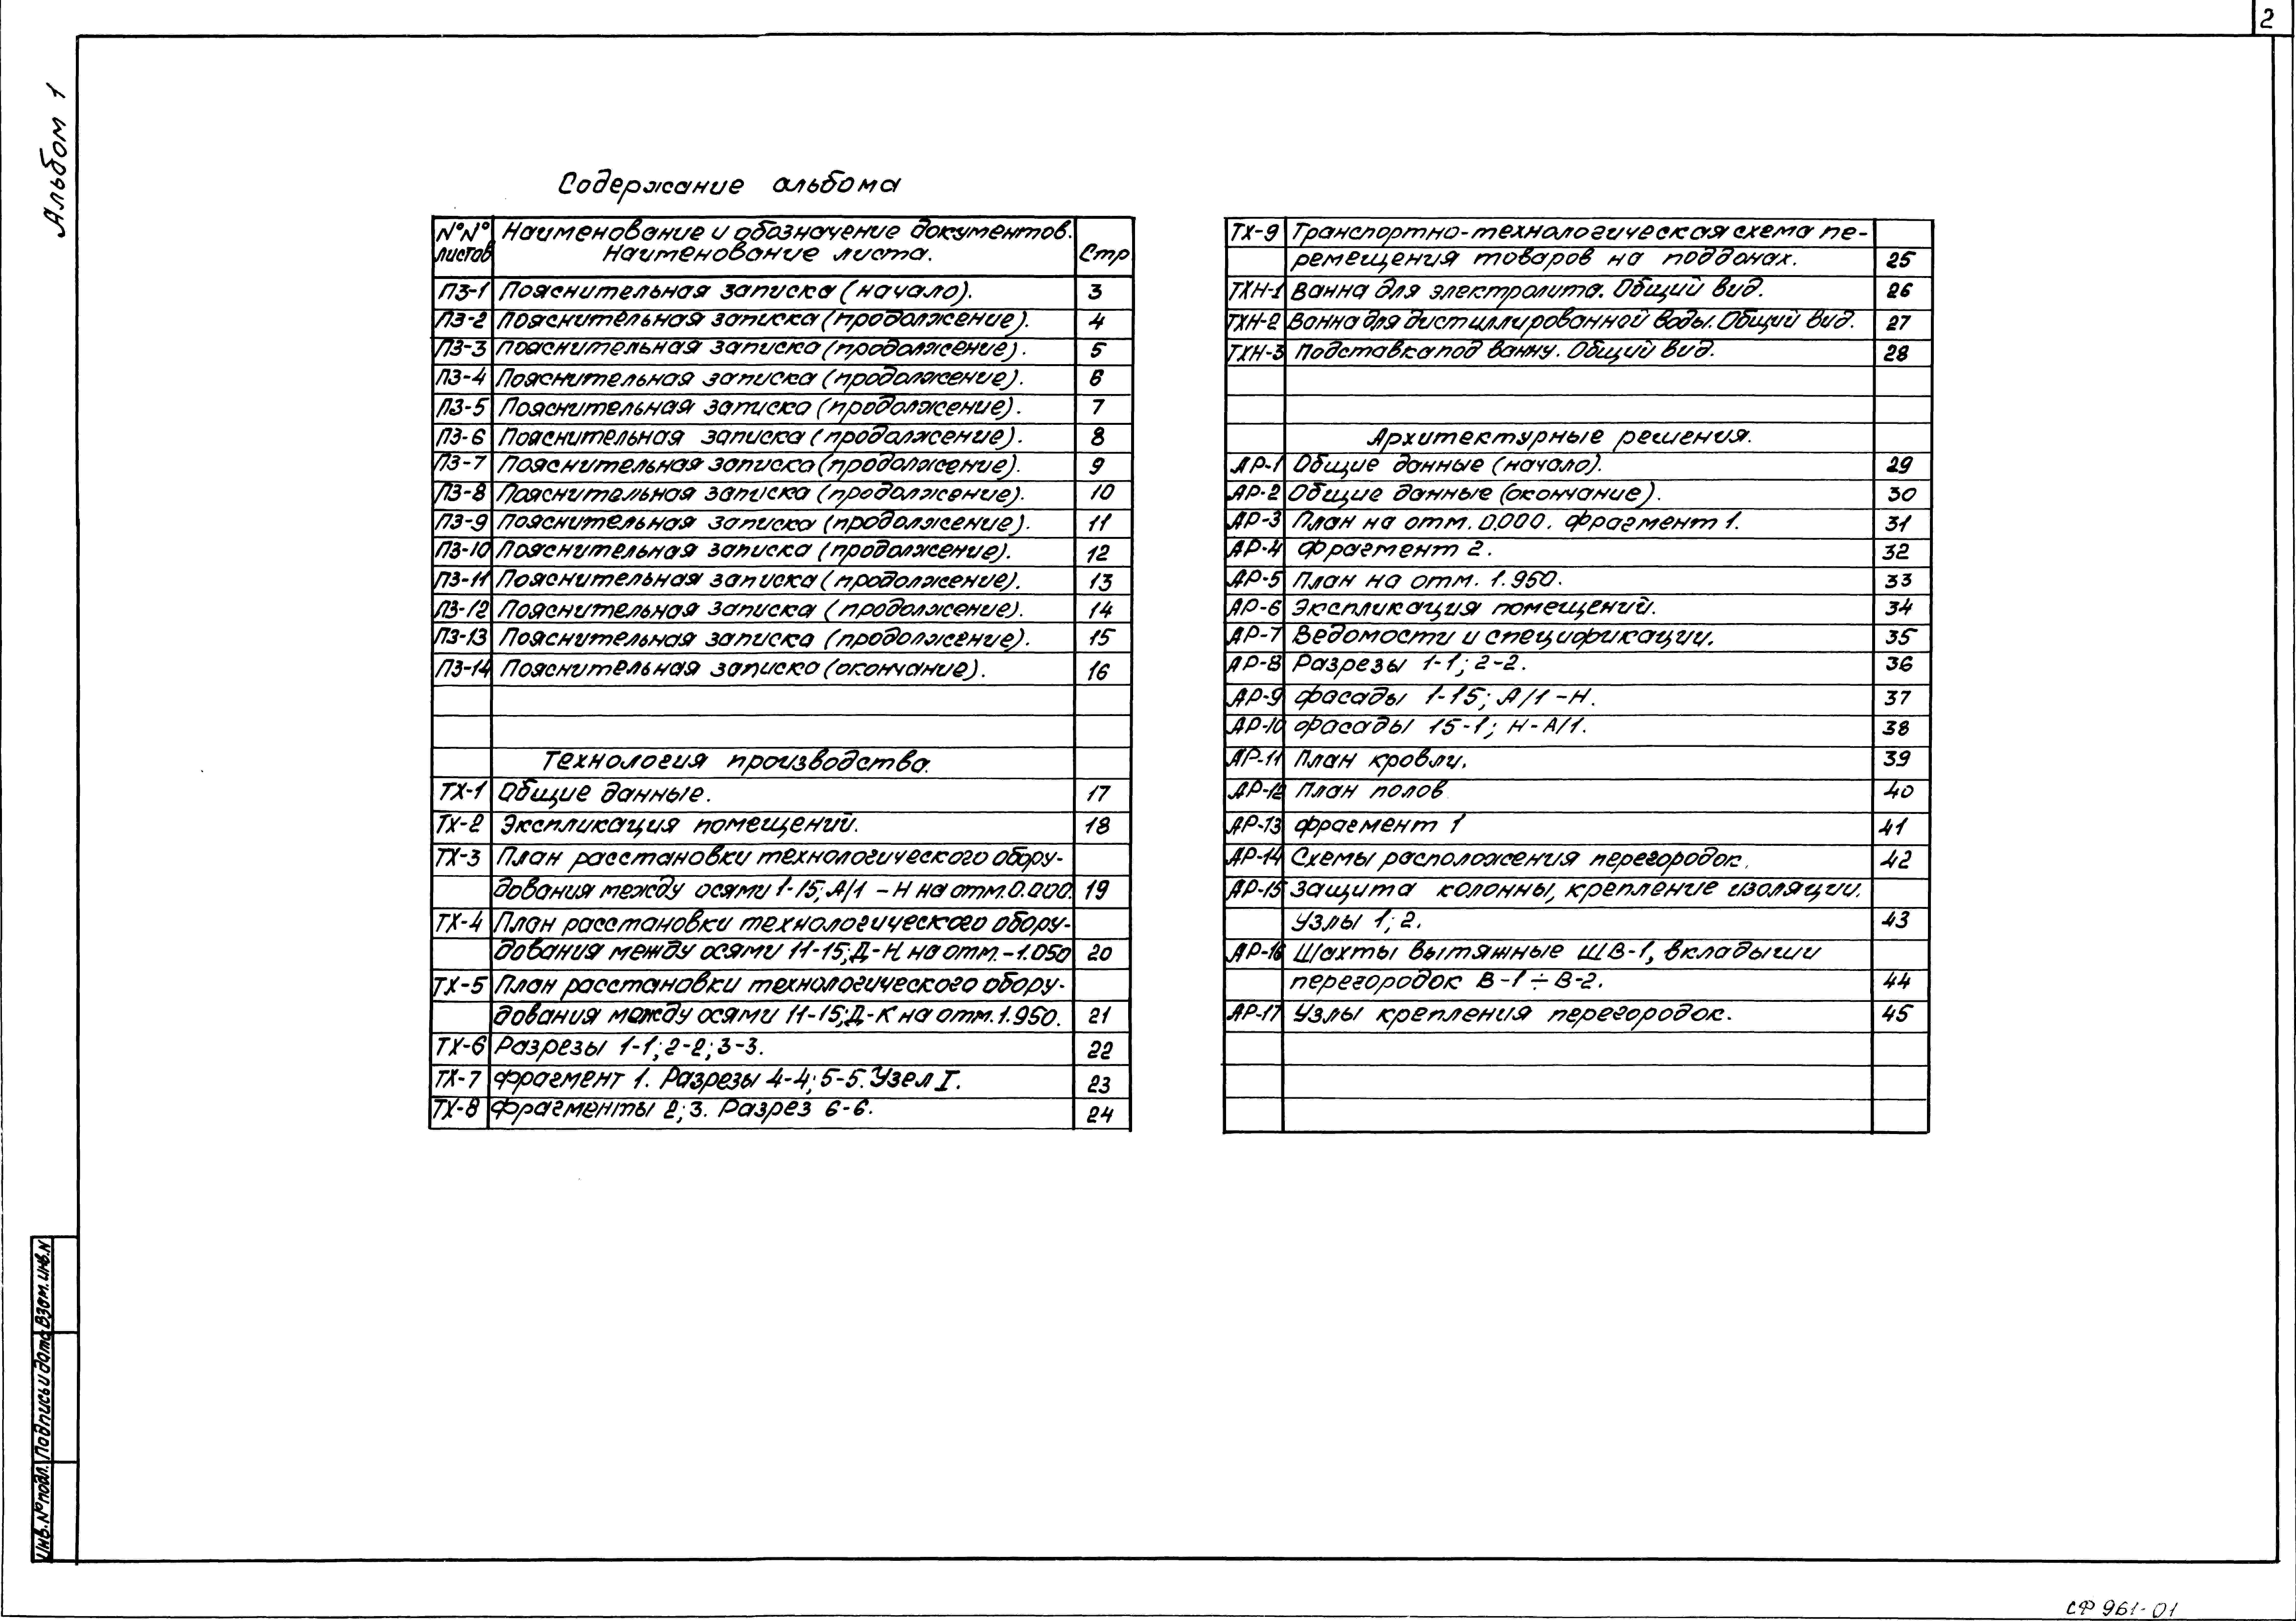 2
Альбом 1
Содержание альбома
№№ листов
Наименование и обозначение документов.
Наименование листа.
Стр
ПЗ-1 Пояснительная записка (начало). 3
ПЗ-2 Пояснительная записка (продолжение). 4
ПЗ-3 Пояснительная записка (продолжение). 5
ПЗ-4 Пояснительная записка (продолжение). 6
ПЗ-5 Пояснительная записка (продолжение). 7
ПЗ-6 Пояснительная записка (продолжение). 8
ПЗ-7 Пояснительная записка (продолжение). 9
ПЗ-8 Пояснительная записка (продолжение). 10
ПЗ-9 Пояснительная записка (продолжение). 11
ПЗ-10 Пояснительная записка (продолжение). 12
ПЗ-11 Пояснительная записка (продолжение). 13
ПЗ-12 Пояснительная записка (продолжение). 14
ПЗ-13 Пояснительная записка (продолжение). 15
ПЗ-14 Пояснительная записка (окончание). 16
Технология производства.
ТХ-1 Общие данные. 17
ТХ-2 Экспликация помещений. 18
ТХ-3 План расстановки технологического обору-
дования между осями 1-15; А/1 - Н на отм. 0.000. 19
ТХ-4 План расстановки технологического обору-
дования между осями 11-15; Д-Н на отм. -1.050 20
ТХ-5 План расстановки технологического обору-
дования между осями 11-15; Д-К на отм. 1.950. 21
ТХ-6 Разрезы 1-1; 2-2; 3-3. 22
ТХ-7 Фрагмент 1. Разрезы 4-4; 5-5. Узел I. 23
ТХ-8 Фрагменты 2; 3. Разрез 6-6. 24
ТХ-9 Транспортно-технологическая схема пе-
ремещения товаров на поддонах. 25
ТХН-1 Ванна для электролита. Общий вид. 26
ТХН-2 Ванна для дистиллированной воды. Общий вид. 27
ТХН-3 Подставка под ванну. Общий вид. 28
Архитектурные решения.
АР-1 Общие данные (начало). 29
АР-2 Общие данные (окончание). 30
АР-3 План на отм. 0.000. Фрагмент 1. 31
АР-4 Фрагмент 2. 32
АР-5 План на отм. 1.950. 33
АР-6 Экспликация помещений. 34
АР-7 Ведомости и спецификации. 35
АР-8 Разрезы 1-1; 2-2. 36
АР-9 Фасады 1-15; А/1 - Н. 37
АР-10 Фасады 15-1; Н - А/1. 38
АР-11 План кровли. 39
АР-12 План полов 40
АР-13 Фрагмент 1 41
АР-14 Схемы расположения перегородок. 42
АР-15 Защита колонны, крепление изоляции.
Узлы 1; 2. 43
АР-16 Шахты вытяжные ШВ-1, вкладыши
перегородок В-1 ÷ В-2. 44
АР-17 Узлы крепления перегородок. 45
Инв. № подл. Подпись и дата Взам. инв. N
СФ 961-01